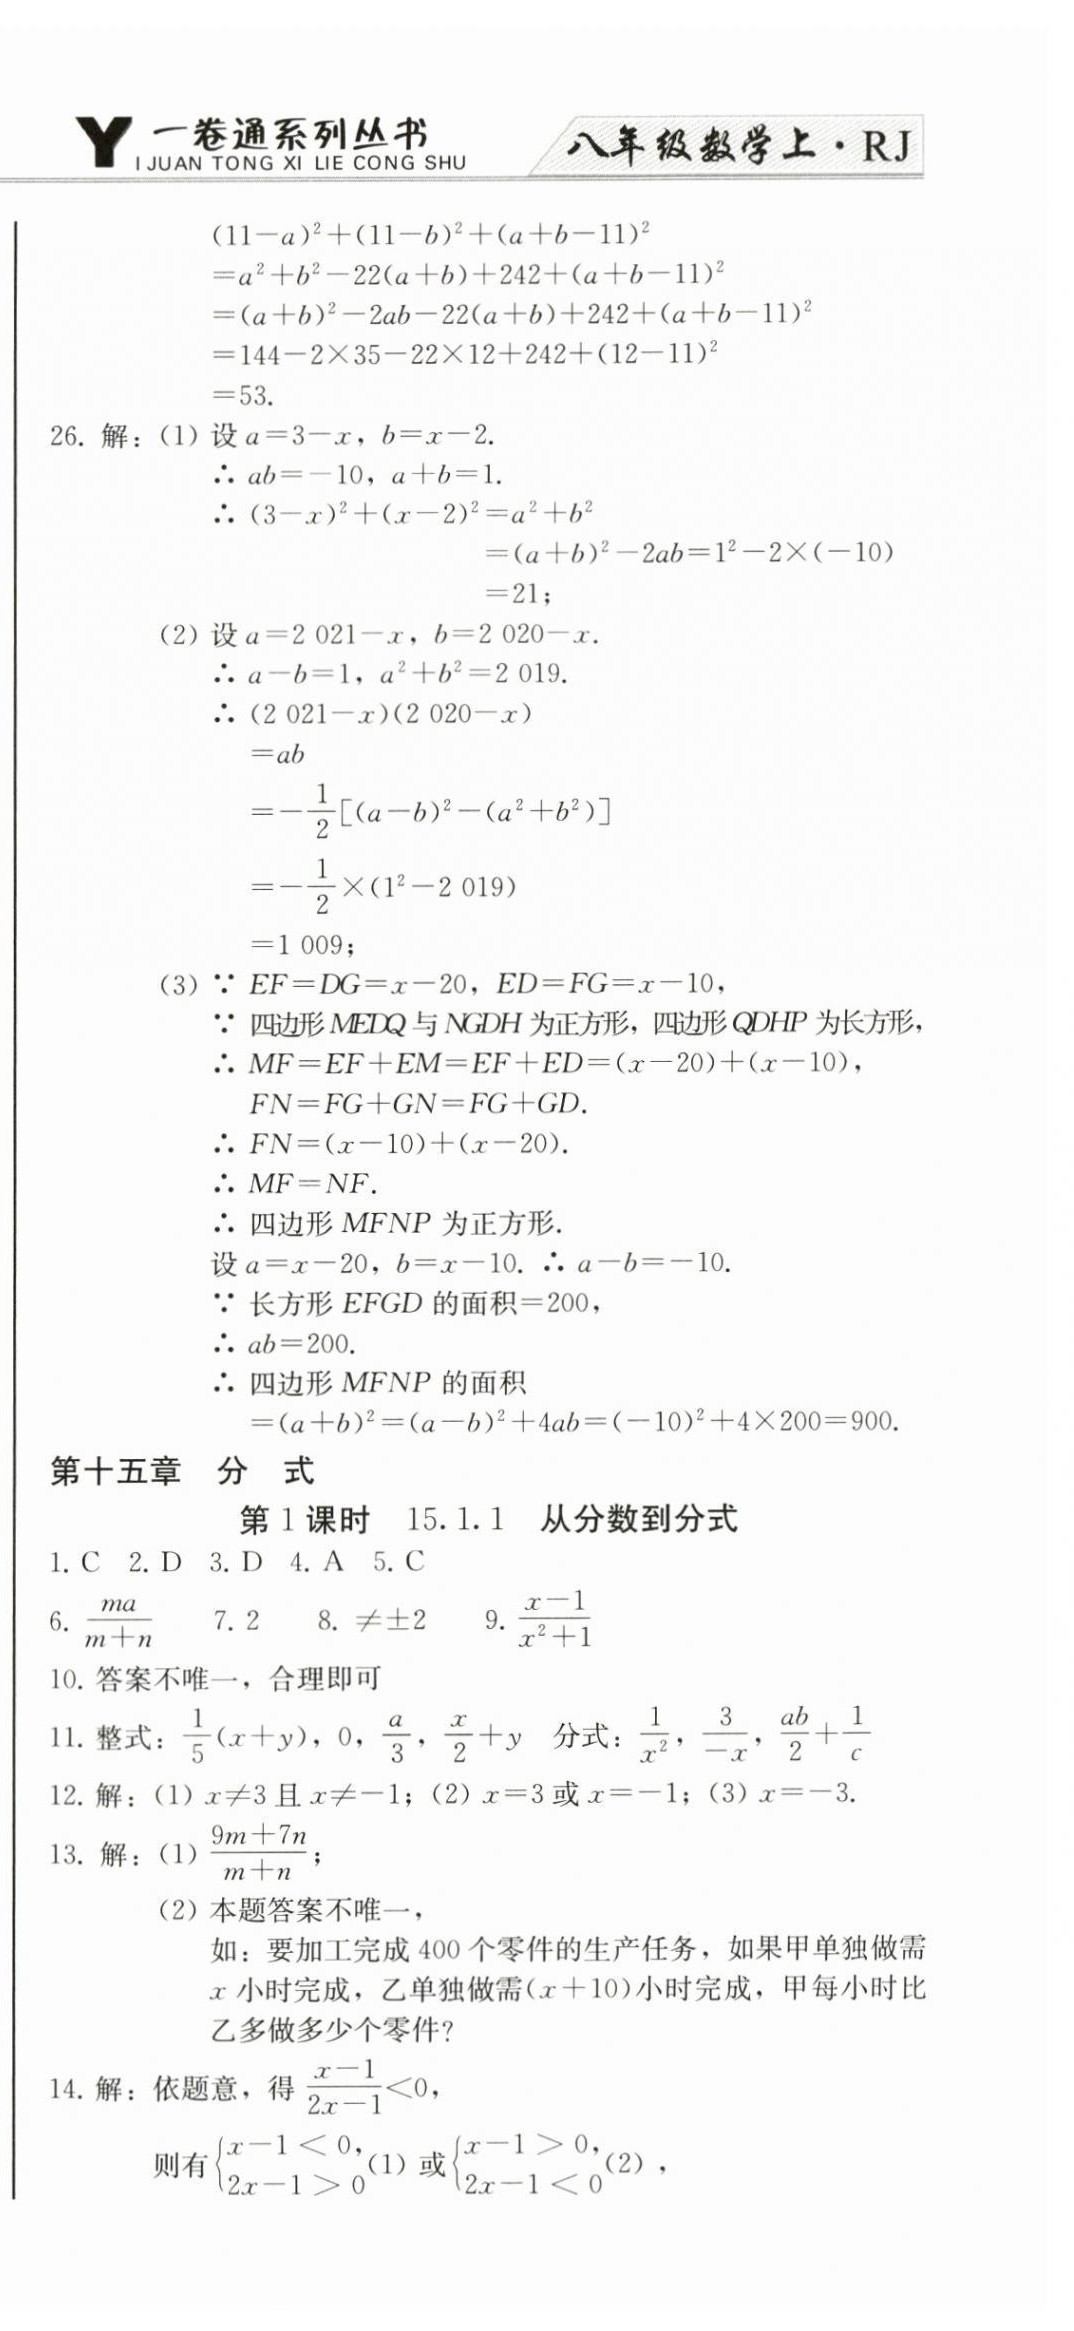 Y 一卷通系列丛书
I JUAN TONG XI LIE CONG SHU
八年级数学上·RJ
(11−a)²+(11−b)²+(a+b−11)²
=a²+b²−22(a+b)+242+(a+b−11)²
=(a+b)²−2ab−22(a+b)+242+(a+b−11)²
=144−2×35−22×12+242+(12−11)²
=53.
26. 解：(1) 设 a=3−x，b=x−2.
∴ ab=−10，a+b=1.
∴ (3−x)²+(x−2)²=a²+b²
=(a+b)²−2ab=1²−2×(−10)
=21；
(2) 设 a=2 021−x，b=2 020−x.
∴ a−b=1，a²+b²=2 019.
∴ (2 021−x)(2 020−x)
=ab
=−1/2[(a−b)²−(a²+b²)]
=−1/2×(1²−2 019)
=1 009；
(3) ∵ EF=DG=x−20，ED=FG=x−10，
∵ 四边形 MEDQ 与 NGDH 为正方形，四边形 QDHP 为长方形，
∴ MF=EF+EM=EF+ED=(x−20)+(x−10)，
FN=FG+GN=FG+GD.
∴ FN=(x−10)+(x−20).
∴ MF=NF.
∴ 四边形 MFNP 为正方形.
设 a=x−20，b=x−10. ∴ a−b=−10.
∵ 长方形 EFGD 的面积=200，
∴ ab=200.
∴ 四边形 MFNP 的面积
=(a+b)²=(a−b)²+4ab=(−10)²+4×200=900.
第十五章 分 式
第 1 课时 15.1.1 从分数到分式
1. C 2. D 3. D 4. A 5. C
6. ma/(m+n) 7. 2 8. ≠±2 9. (x−1)/(x²+1)
10. 答案不唯一，合理即可
11. 整式：1/5(x+y)，0，a/3，x/2+y 分式：1/x²，3/(−x)，ab/2+1/c
12. 解：(1) x≠3 且 x≠−1；(2) x=3 或 x=−1；(3) x=−3.
13. 解：(1) (9m+7n)/(m+n)；
(2) 本题答案不唯一，
如：要加工完成 400 个零件的生产任务，如果甲单独做需
x 小时完成，乙单独做需(x+10)小时完成，甲每小时比
乙多做多少个零件？
14. 解：依题意，得 (x−1)/(2x−1)<0，
则有{x−1<0，2x−1>0 (1) 或{x−1>0，2x−1<0 (2)，